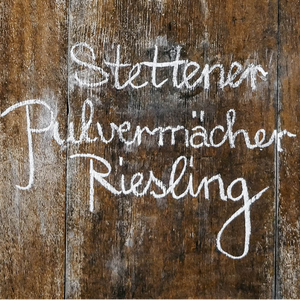 Stettener
Pulvermächer
Riesling